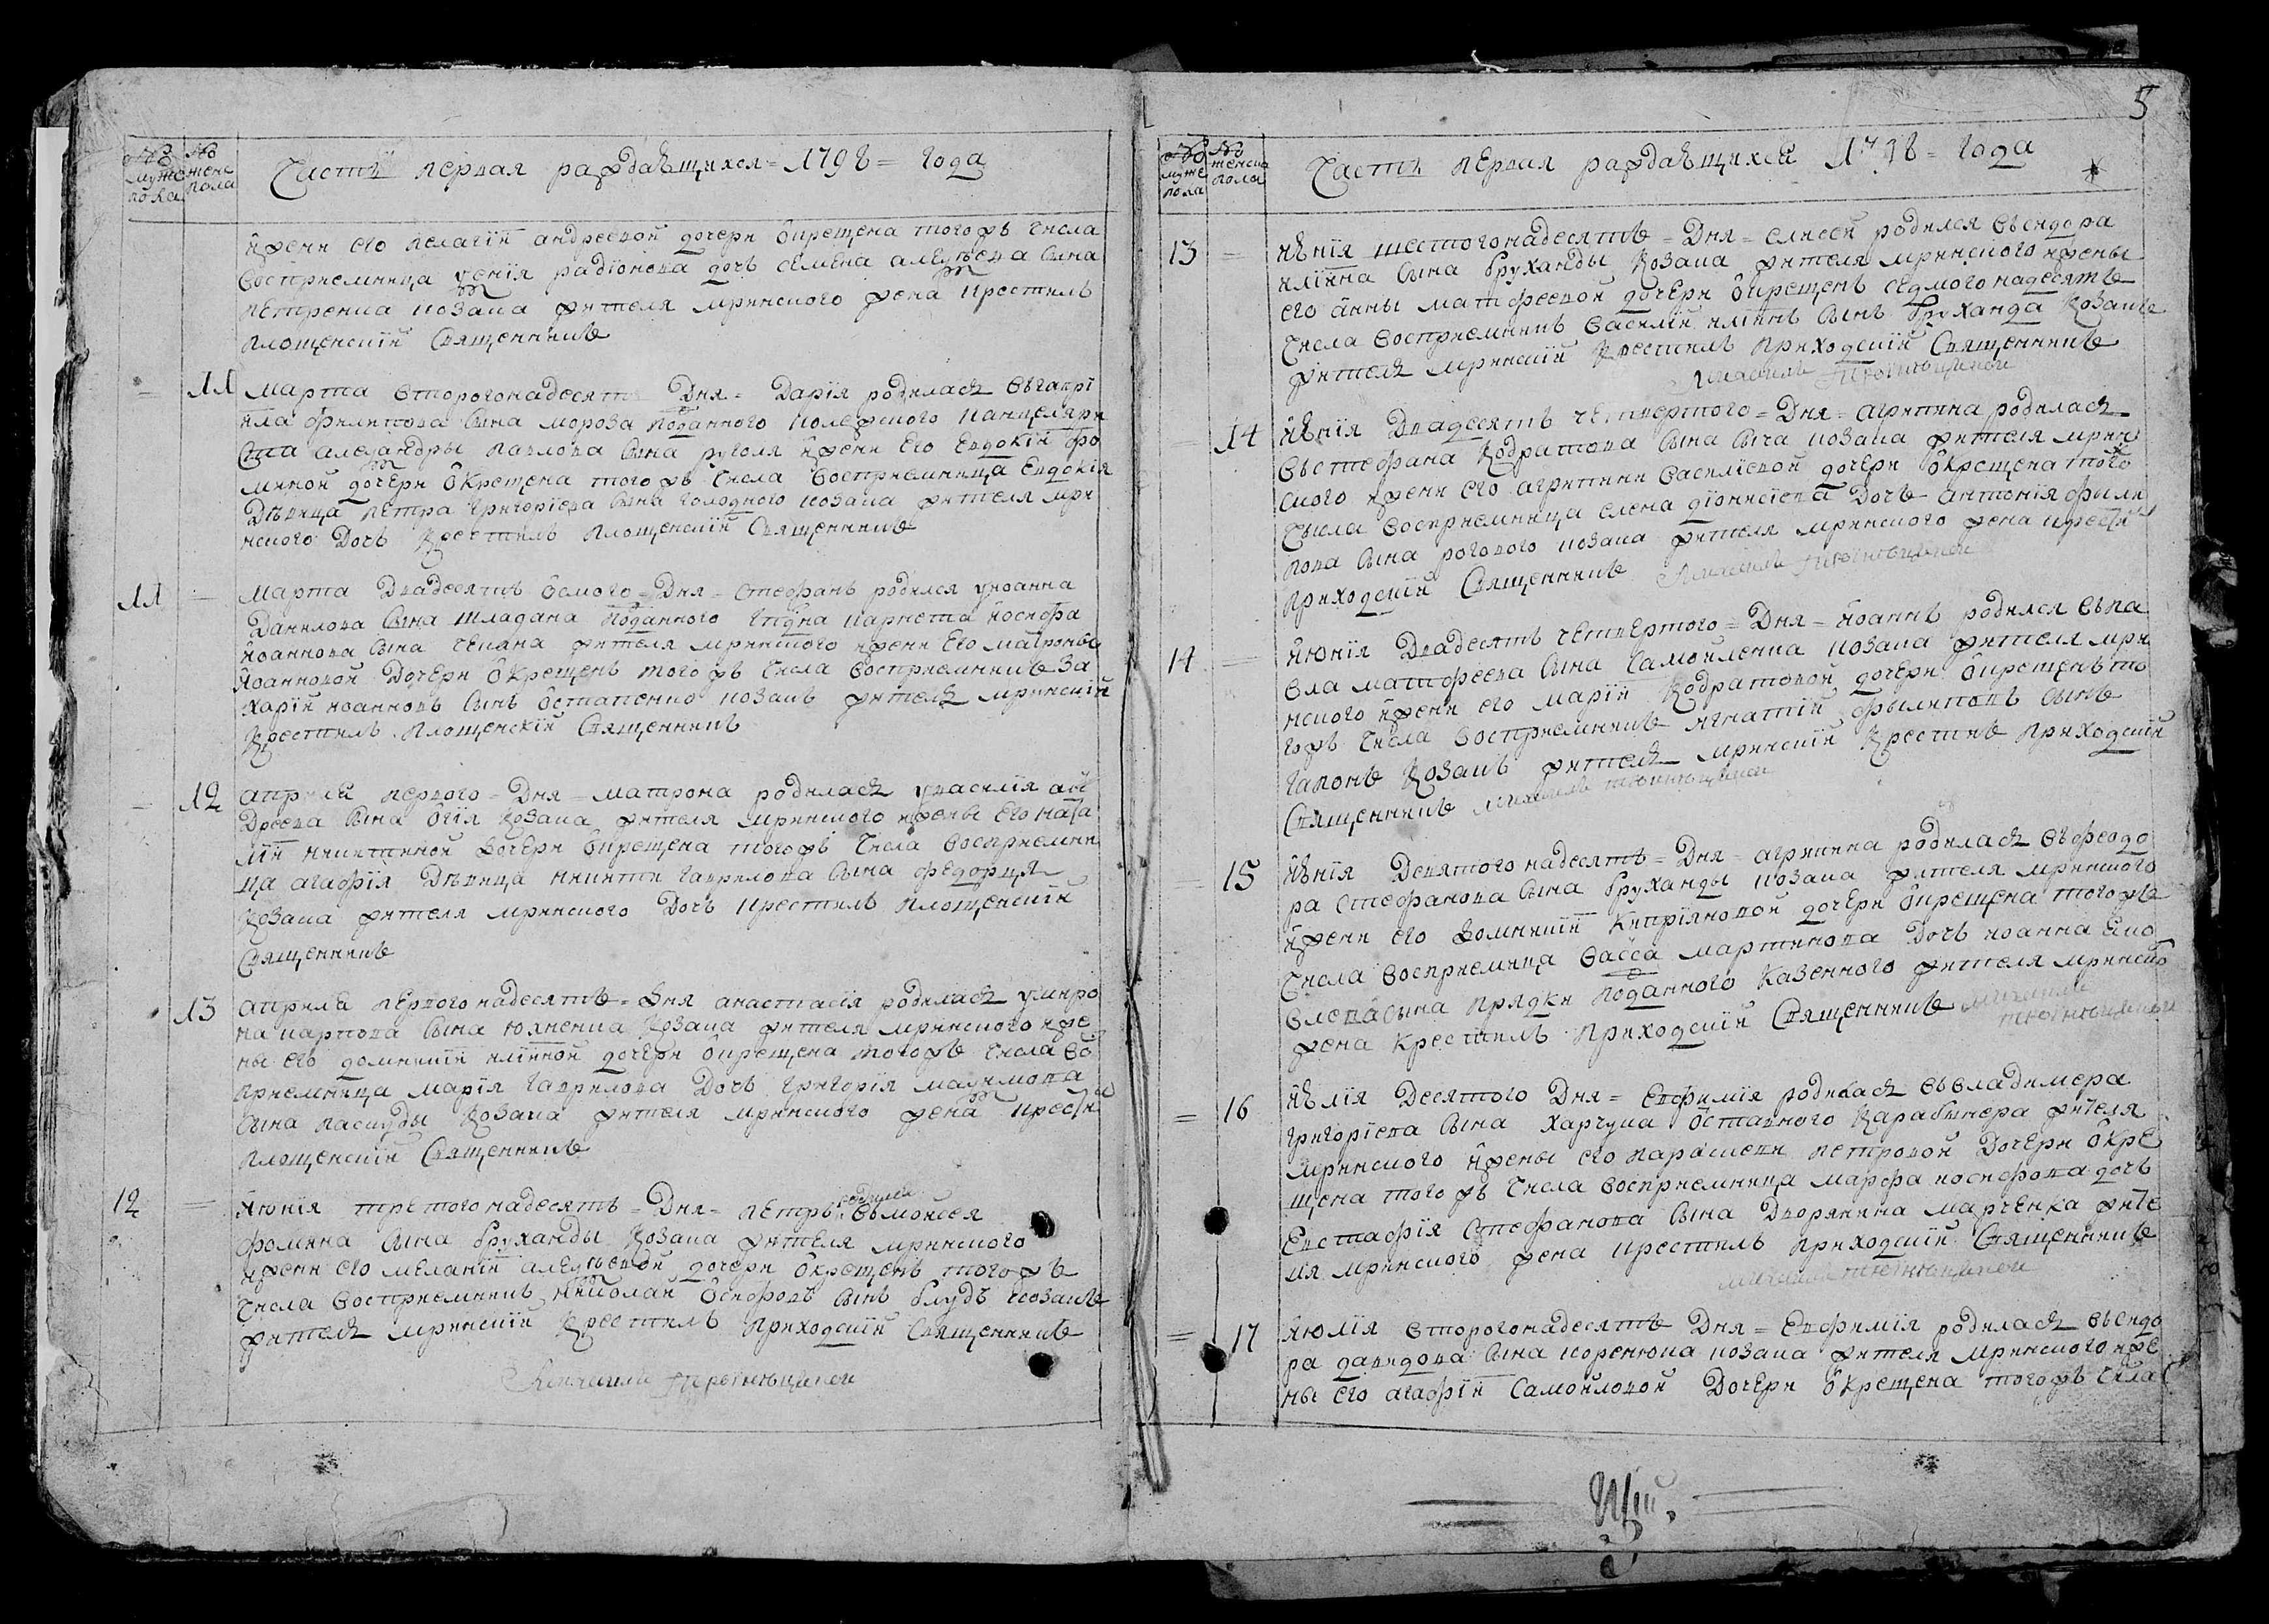 № муже пола
№ женс пола
Часть первая раждающихся = 1798 = года
и жени его пелагіи андреевой дочери окрещена того жъ числа
восприемница ксенія радіонова дочь семена алексѣева сына
петренка козака жителя мринского жена крестилъ
площенскій священникъ
11 марта второгонадесять Дня = Дарія родилась въ гаврі
ила филипова сына мороза подданного колежского канцеляри
ста александры павлова сына жени его Евдокіи фо
миной дочери окрещена того жъ числа восприемница Евдокія
Дѣвица петра григоріева сына голодного козака жителя мри
нского дочь крестилъ площенскій священникъ
11 марта двадесять осмого = Дня = стефанъ родился у иоанна
Данилова сына шладана подданного иосифа
иоаннова сына жителя мринского жени его матроны
иоанновой дочери окрещенъ того жъ числа восприемникъ за
харій иоанновъ сынъ остапенко козакъ житель мринскій
крестилъ площенскій священникъ
12 априлія первого = Дня = матрона родилась у василія ан
дреева сына огія козака жителя мринского и жены его ната
ліи никитиной дочери окрещена того жъ числа восприемни
ца агафія Дѣвица никити гаврилова сына федорця
козака жителя мринского дочь крестилъ площенскій
священникъ
13 априля первогонадесять = Дня анастасія родилась у миро
на карпова сына юхненка козака жителя мринского и же
ны его домникіи иліиной дочери окрещена того жъ числа вос
приемница марія гаврилова дочь григорія максимова
сына пасюды козака жителя мринского жена крестил
площенскій священникъ
12 июнія третогонадесять = Дня = петръ родился въ моисея
фомина сына бруханды козака жителя мринского
и жени его меланіи алексѣевой дочери окрещенъ того жъ
числа восприемникъ николай осифовъ сынъ блудъ козакъ
житель мринскій крестилъ приходскій священникъ
5
№ муже пола
№ женска пола
Часть первая раждающихся 1798 = года
13 июнія шестогонадесять = Дня = елисей родился въ сидора
иліина сына бруханды козака жителя мринского и жены
его анны матфеевой дочери окрещенъ седмогонадесять
числа восприемникъ василій иліинъ сынъ бруханда козакъ
житель мринскій крестилъ приходскій священникъ
14 июнія двадесять четвертого = Дня = агрипина родилась
въ стефана кодратова сына сыча козака жителя мрин
ского и жени его агрипини василіевой дочери окрещена того
числа восприемница елена діонисіева дочь антонія фили
пова сына рогового козака жителя мринского жена крести
приходскій священникъ
14 июнія двадесять четвертого = Дня = иоаннъ родился въ па
вла матфеева сына самойленка козака жителя мри
нского и жени его маріи кодратовой дочери окрещенъ то
гожъ числа восприемникъ игнатій филиповъ сынъ
гапонъ козакъ житель мринскій крестилъ приходскій
священникъ
15 июнія девятогонадесять = Дня = агрипина родилась въ феодо
ра стефанова сына бруханды козака жителя мринского
и жени его домникіи кипріяновой дочери окрещена того жъ
числа восприемница васса мартинова дочь иоанна яко
влева сына прядки подданного казенного жителя мринско
жена крестилъ приходскій священникъ
16 июлія десятого Дня = Евфимія родилась въ владимера
григоріева сына харчука отставного карабинера жителя
мринского и жены его параскеви петровой дочери окре
щена того жъ числа восприемница марфа иосифова дочь
Евстафія стефанова сына дворянина марченка жите
ля мринского жена крестилъ приходскій священникъ
17 июлія второгонадесять Дня = Евфимія родилась въ сидо
ра давидова сына коренюка козака жителя мринского и же
ны его агафіи самойловой дочери окрещена того жъ числа